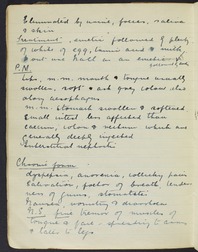 Eliminated by urine, faeces, saliva
& skin.
Treatment: emetic followed by plenty
of white of egg, tannic acid & milk,
P.M.
Lips, m.m. mouth & tongue usually
swollen, soft & ash grey colour also
along oesophagus
m.m. stomach swollen & softened
Small intest. less affected than
caecum, colon & rectum which are
generally deeply injected
Interstitial nephritis
Chronic form
dyspepsia, anorexia, colicky pains
Salivation, foetor of breath, tender-
ness of gums, stomatitis
Nausea, vomiting & diarrhoea
N.S. fine tremor of muscles of
tongue & face, spreading to arms
& later to legs